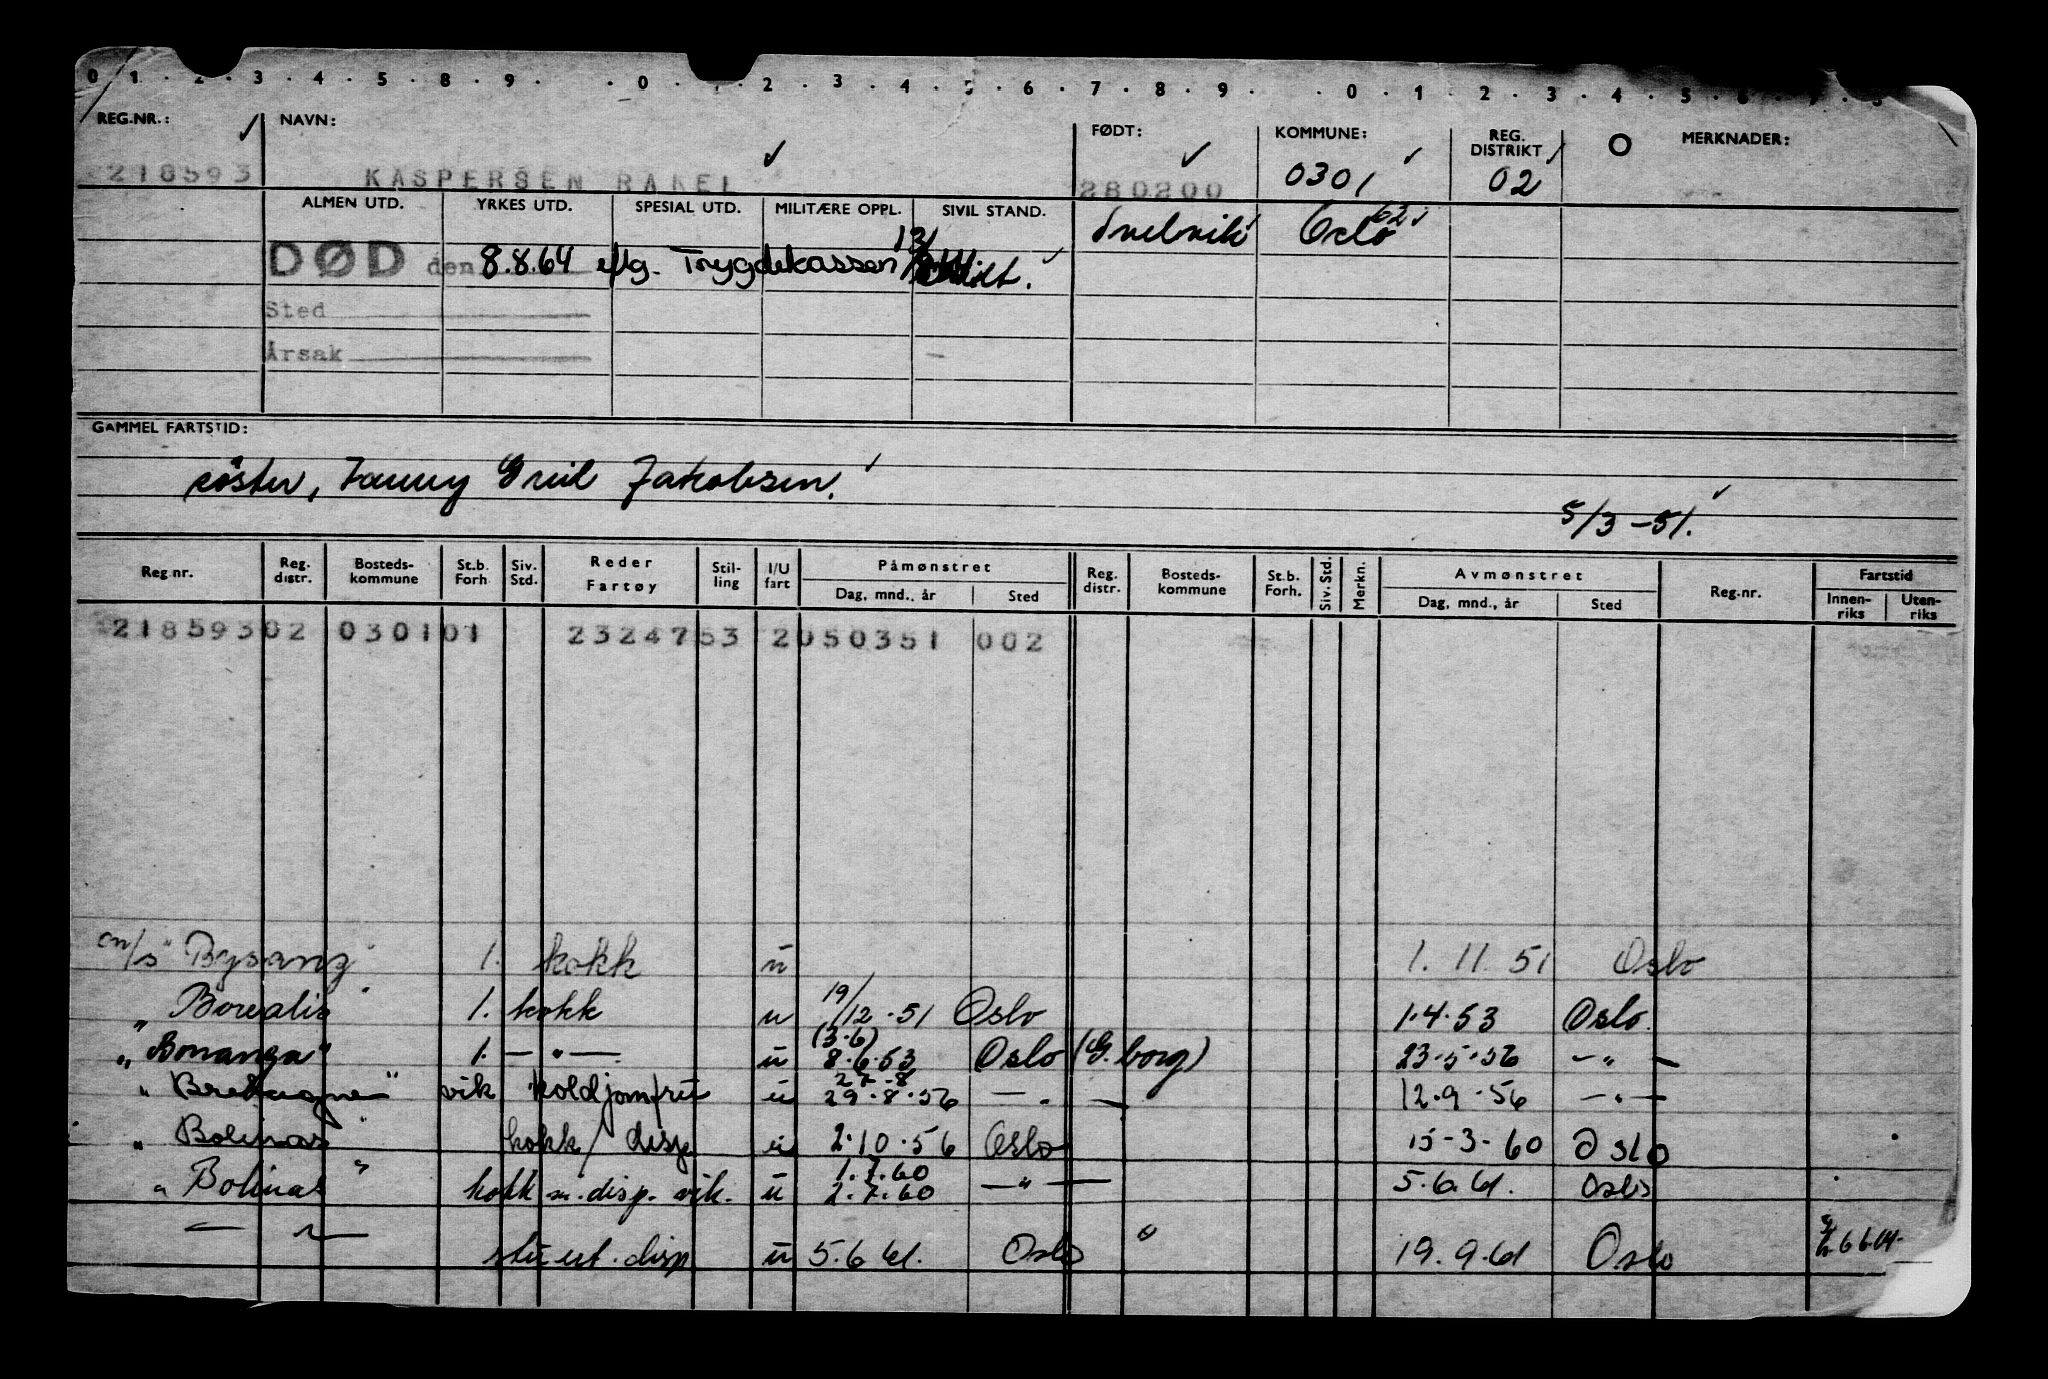 0 1 . 2 . 3 . 4 . 5 . 8 . 9 . . 0 . 1 . 2 . 3 . 4 . 5 . 6 . 7 . 8 . 9 . . 0 . 1 . 2 . 3 . 4 . 5 . 6 . 7 . 8
REG.NR.: NAVN: FØDT: KOMMUNE: REG. DISTRIKT MERKNADER:
218593 KASPERSEN RAKEL 280200 0301 02
ALMEN UTD. YRKES UTD. SPESIAL UTD. MILITÆRE OPPL. SIVIL STAND. Svelvik Oslo 62
DØD den 8.8.64 iflg. Trygdekassen
Sted
Årsak
GAMMEL FARTSTID:
söster, Fanny Gruil Jakobsen.
5/3-51.
Reg.nr. Reg. distr. Bosteds-kommune St.b. Forh Siv. Std. Reder Fartøy Stil-ling I/U fart Påmønstret Dag, mnd., år Sted Reg. distr. Bosteds-kommune St.b. Forh. Siv. Std. Merkn. Avmønstret Dag, mnd., år Sted Reg.nr. Fartstid Innen-riks Uten-riks
21859302 030101 2324753 2050351 002
m/s "Bysanz" 1. kokk u 1.11.51 Oslo
" Borealis" 1. kokk u 19/12.51 Oslo 1.4.53 Oslo.
" Bonanza" 1. — " — u (3.6) 8.6.53 Oslo (G.borg) 23.5.56 — " —
" Bretagne" vik koldjomfru u 27.8 29.8.56 — " — 12.9.56 — " —
" Bolinas" kokk/disp u 2.10.56 Oslo 15-3-60 Oslo
" Bolinas" kokk m.disp. vik. u 1.7.60 2.7.60 — " — 5.6.61. Oslo
— " — stuert.disp u 5.6.61. Oslo 19.9.61 Oslo